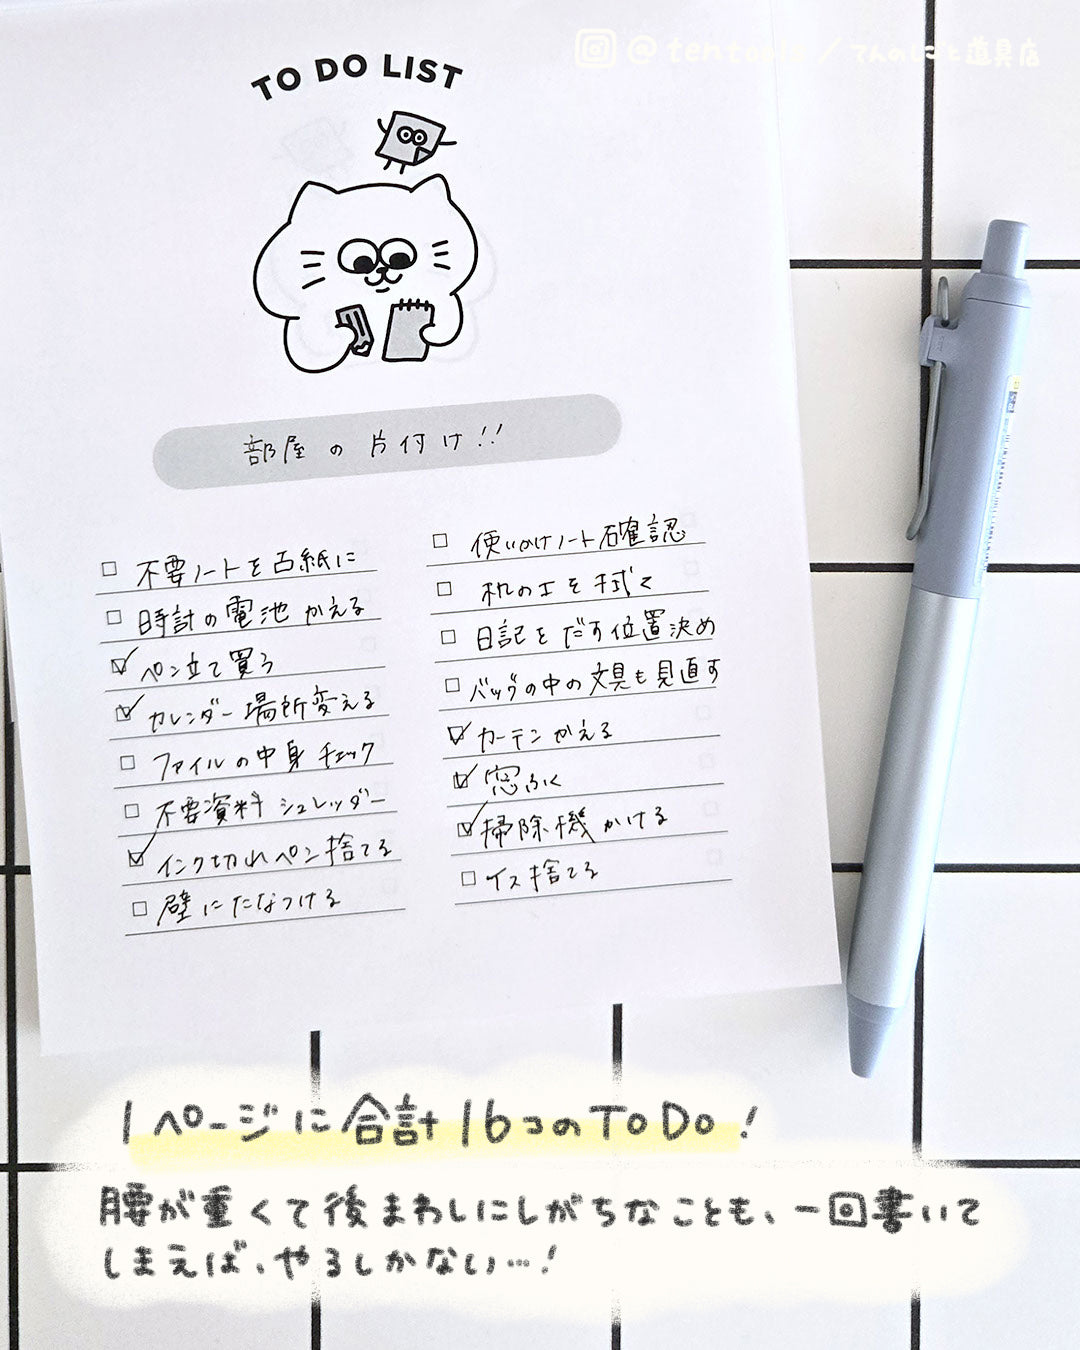 @tentopia / てんのしごと道具店
TO DO LIST
部屋の片付け!!
不要ノートを古紙に
時計の電池かえる
ペン立て買う
カレンダー場所変える
ファイルの中身チェック
不要資料シュレッダー
インク切れペン捨てる
壁にたなつける
使いかけノート確認
机の上を拭く
日記をだす位置決め
バッグの中の文具も見直す
カーテンかえる
窓ふく
掃除機かける
イス捨てる
1ページに合計16コのToDo!
腰が重くて後まわしにしがちなことも、一回書いて
しまえば、やるしかない…!